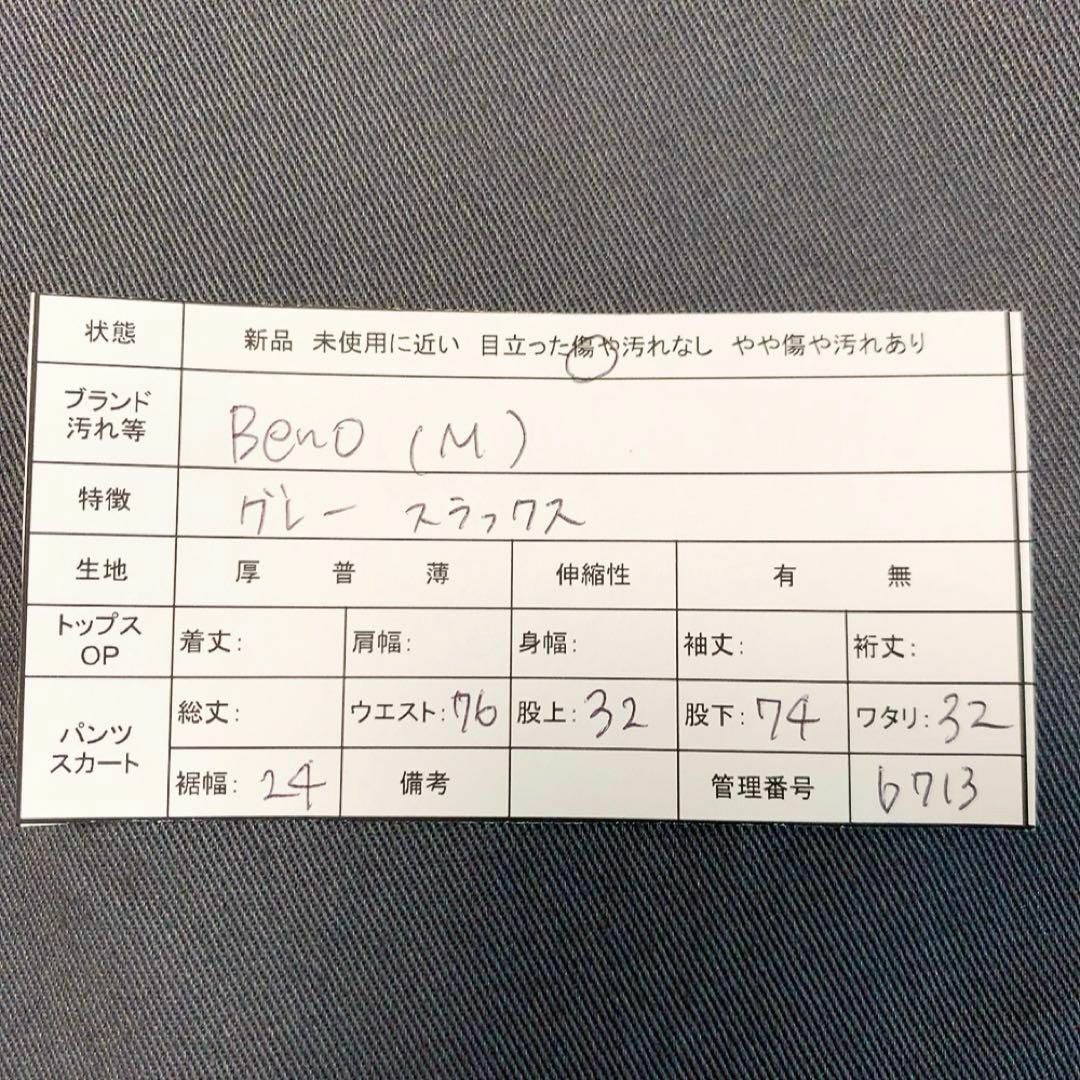 状態 新品 未使用に近い 目立った傷や汚れなし やや傷や汚れあり
ブランド
汚れ等
Beno (M)
特徴 グレー スラックス
生地 厚 普 薄 伸縮性 有 無
トップス
OP
着丈: 肩幅: 身幅: 袖丈: 裄丈:
パンツ
スカート
総丈: ウエスト:76 股上:32 股下:74 ワタリ:32
裾幅: 24 備考 管理番号 6713